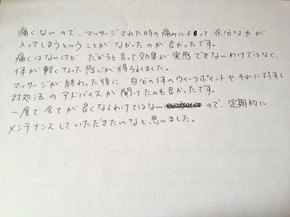 痛くないので、マッサージされた時の痛みによって余分な力が
入ってしまうということがなかったのが良かったです。
痛くはないけど だからと言って効果が実感できないわけではなく、
体が軽くなった感じが得られました。
マッサージが終わった後に、自分の体のウィークポイントやそれに対する
対処法のアドバイスが聞けたのも良かったです。
一度で全てが良くなるわけではないので、定期的に
メンテナンスしていただきたいなと思いました。